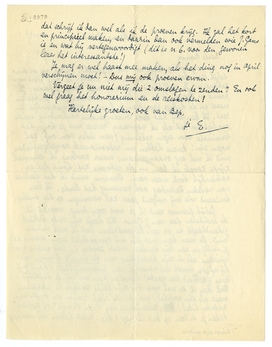 dat schrijf ik dan wel als ik de proeven krijg. Ik zal het kort
en principieel maken, en daarin dan ook vermelden wie J. Gans
is en wat hij vertegenwoordigt (dit is n.b. voor den gewonen
lezer het interessantste!)
Je mag er wel haast mee maken, als het ding nog in April
verschijnen moet! – Dus mij ook proeven ervan.
Vergeet je nu niet mij die 2 omslagen te zenden? En ook
wel graag het honorarium en de reiskosten!
Hartelijke groeten, ook van Bep,
je E.